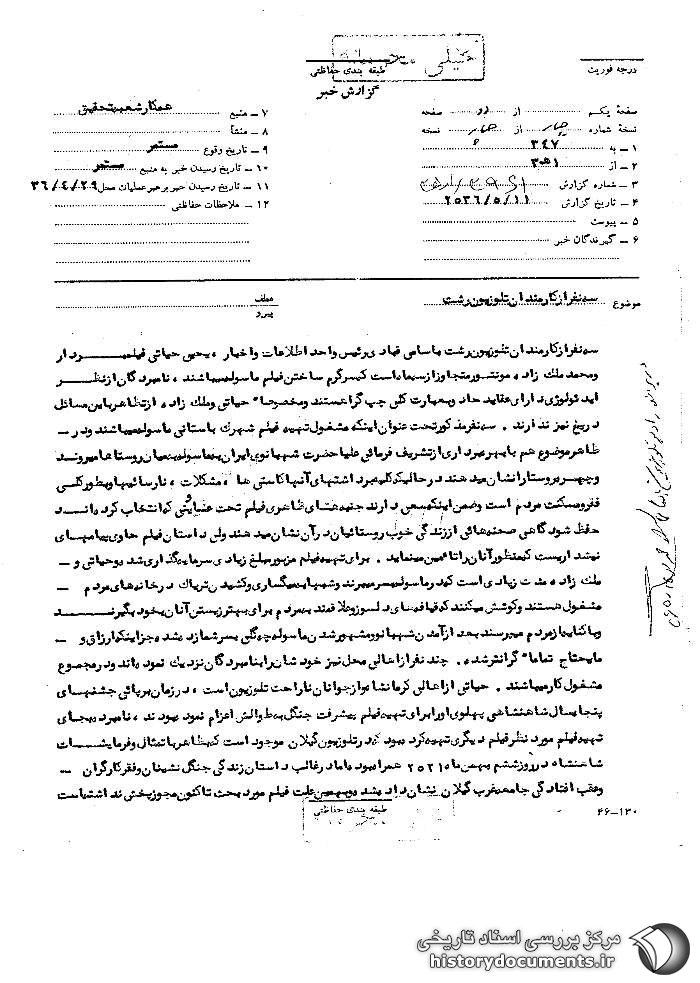 خیلی محرمانه
طبقه بندی حفاظتی
گزارش خبر
درجه فوریت
صفحهٔ یکم از دو صفحه
نسخهٔ شماره چهار از چهار نسخه
۱ – به ۳۴۷
۲ – از ۳۵۱
۳ – شماره گزارش
۴ – تاریخ گزارش ۲۵۳۶/۵/۱۱
۵ – پیوست
۶ – گیرندگان خبر
۷ – منبع همکار شعبه تحقیق
۸ – منشأ
۹ – تاریخ وقوع مستمر
۱۰ – تاریخ رسیدن خبر به منبع مستمر
۱۱ – تاریخ رسیدن خبر برهبر عملیات محل ۳۶/۴/۲۹
۱۲ – ملاحظات حفاظتی
موضوع سه نفر از کارمندان تلویزیون رشت
عطف
پیرو
سه نفر از کارمندان تلویزیون رشت باسامی قبادی رئیس واحد اطلاعات واخبار ، یحیی حیاتی فیلمبردار
ومحمد ملک زاده مونتور متجاوز از سه ماه است که سرگرم ساختن فیلم ماسوله میباشند ، نامبردگان از نظر
ایدئولوژی دارای عقاید حاد وبعبارت کلی چپ گرا هستند ومخصوصاً حیاتی وملک زاده ، از تظاهر باین مسائل
دریغ نیز ندارند . سه نفر مذکور تحت عنوان اینکه مشغول تهیه فیلم شهرک باستانی ماسوله میباشند ودر –
ظاهر موضوع هم با بهره برداری از تشریف فرمائی علیا حضرت شهبانوی ایران بماسوله بمیان روستاها میروند
وچهره روستا را نشان میدهند در حالیکه کلیه برداشتهای آنها کاستی ها ، مشکلات ، نارسائیها وبطور کلی
فقر ومسکنت مردم است وضمن اینکه سعی دارند جنبه های ظاهری فیلم تحت عنوانی که انتخاب کرده اند
حفظ شود گاهی صحنه هائی از زندگی خوب روستائیان در آن نشان میدهند ولی داستان فیلم حاوی پیامهای
نیشداریست که منظور آنان را تامین مینماید . برای تهیه فیلم مزبور مبلغ زیادی سرمایه گذاری شده وحیاتی و –
ملک زاده مدت زیادی است که در ماسوله بسر میبرند وشبها به میگساری وکشیدن تریاک در خانه های مردم –
مشغول هستند وکوشش میکنند که قیافه های دلسوز وعلاقمند بمردم برای بهتر زیستن آنان بخود بگیرند
وباکنایه از مردم میپرسند بعد از آمدن شهبانو ومشهور شدن ماسوله چه گلی بسر شما زده شده جز اینکه ارزاق و –
مایحتاج تماماً گرانتر شده . چند نفر از اهالی محل نیز خودشان را بنامبردگان نزدیک نموده اند ودر مجموع
مشغول کار میباشند . حیاتی از اهالی کرمانشاه واز جوانان ناراحت تلویزیون است ، در زمان برپائی جشنهای
پنجاه سال شاهنشاهی پهلوی او را برای تهیه فیلم پیشرفت جنگل به طوالش اعزام نموده بودند ، نامبرده بجای
تهیه فیلم مورد نظر فیلم دیگری تهیه کرده بود که در تلویزیون گیلان موجود است که بظاهر با تمثال وفرمایشات
شاهنشاه در روز ششم بهمن ماه ۲۵۳۵ همراه بود اما در غالب داستان زندگی جنگل نشینان وفقر کارگران –
وعقب افتادگی جامعه غرب گیلان نشان داده شد وبهمین علت فیلم مورد بحث تاکنون مجوز پخش نداشته است
طبقه بندی حفاظتی
۴۶–۱۲۰
مرکز بررسی اسناد تاریخی
historydocuments.ir